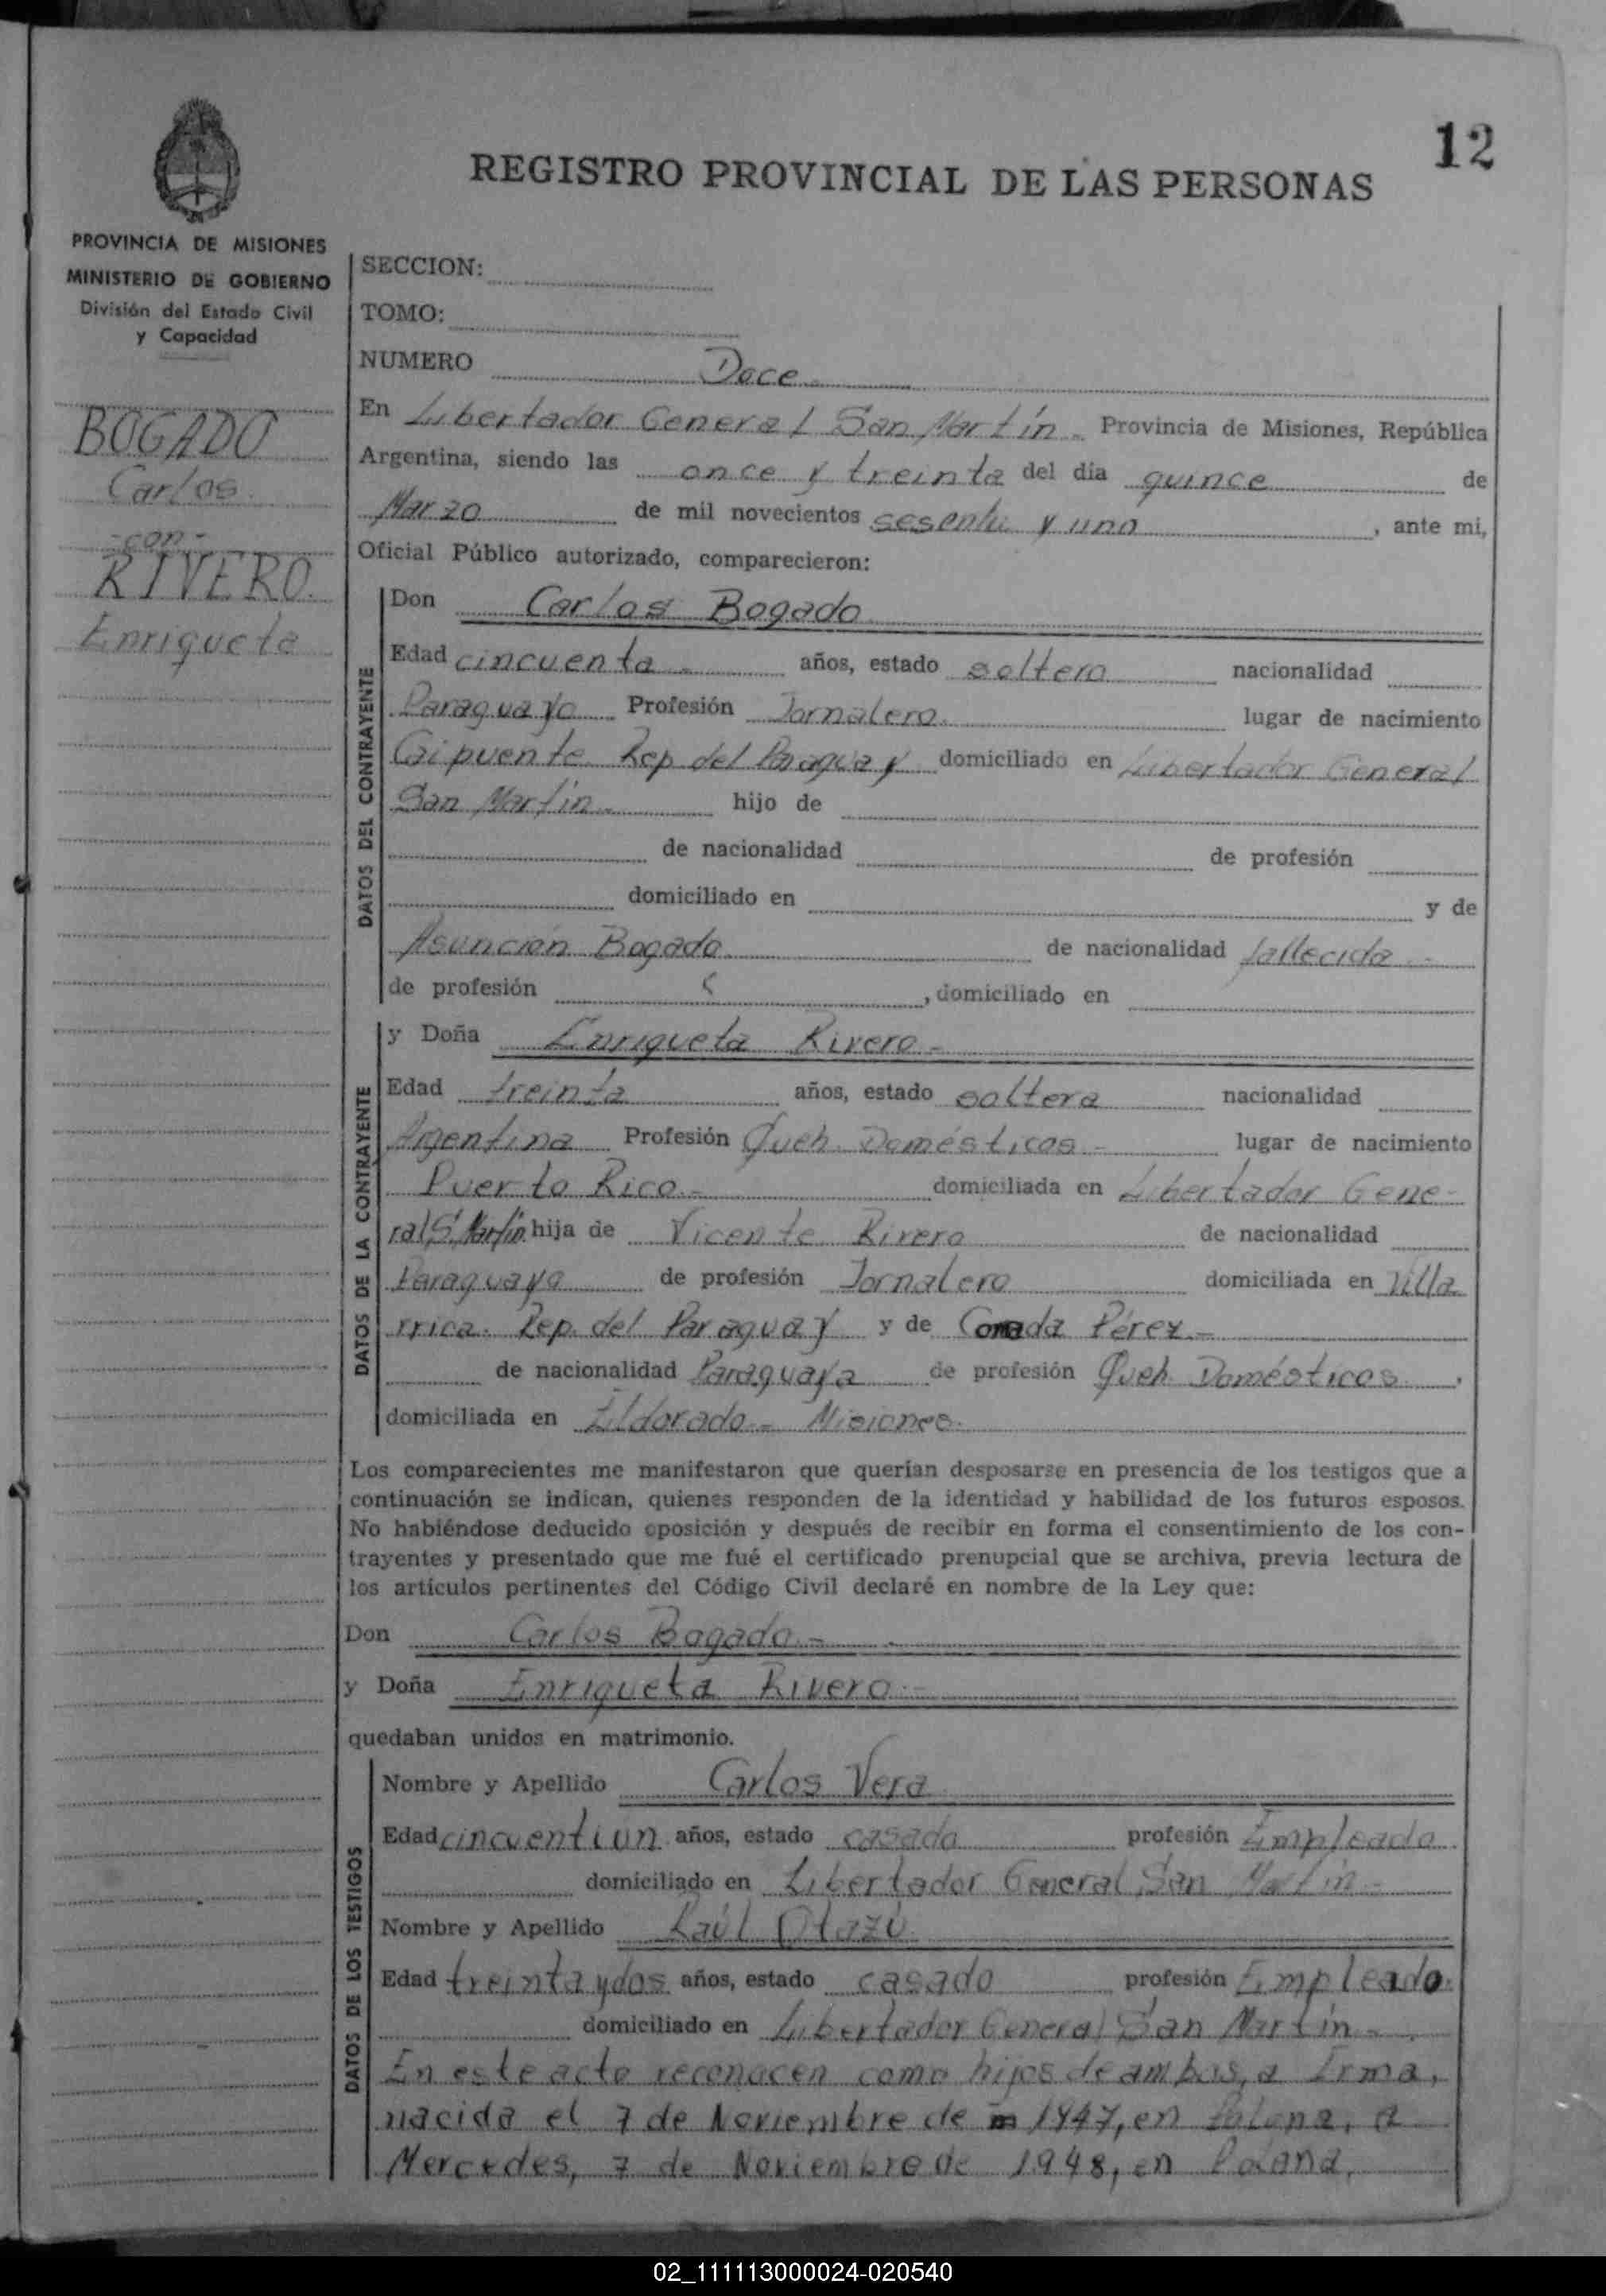 12
REGISTRO PROVINCIAL DE LAS PERSONAS
PROVINCIA DE MISIONES
MINISTERIO DE GOBIERNO
División del Estado Civil
y Capacidad
BOGADO
Carlos
-con-
RIVERO.
Enriqueta
SECCION:
TOMO:
NUMERO Doce
En Libertador General San Martín - Provincia de Misiones, República
Argentina, siendo las once y treinta del día quince de
Marzo de mil novecientos sesenta y uno, ante mi,
Oficial Público autorizado, comparecieron:
DATOS DEL CONTRAYENTE
Don Carlos Bogado
Edad cincuenta - años, estado soltero nacionalidad
Paraguayo Profesión Jornalero lugar de nacimiento
Caipuente Rep. del Paraguay domiciliado en Libertador General
San Martín hijo de
de nacionalidad de profesión
domiciliado en y de
Asunción Bogado de nacionalidad fallecida -
de profesión , domiciliado en
DATOS DE LA CONTRAYENTE
y Doña Enriqueta Rivero -
Edad treinta años, estado soltera nacionalidad
Argentina Profesión Queh. Domésticos - lugar de nacimiento
Puerto Rico - domiciliada en Libertador Gene-
ral S. Martín hija de Vicente Rivero de nacionalidad
Paraguayo de profesión Jornalero domiciliada en Villa
rrica. Rep. del Paraguay y de Pérez -
de nacionalidad Paraguaya de profesión Queh. Domésticos ,
domiciliada en Eldorado - Misiones.
Los comparecientes me manifestaron que querían desposarse en presencia de los testigos que a
continuación se indican, quienes responden de la identidad y habilidad de los futuros esposos.
No habiéndose deducido oposición y después de recibir en forma el consentimiento de los con-
trayentes y presentado que me fué el certificado prenupcial que se archiva, previa lectura de
los artículos pertinentes del Código Civil declaré en nombre de la Ley que:
Don Carlos Bogado -
y Doña Enriqueta Rivero -
quedaban unidos en matrimonio.
DATOS DE LOS TESTIGOS
Nombre y Apellido Carlos Vera
Edad cincuentiun años, estado casado profesión Empleado
domiciliado en Libertador General San Martín -
Nombre y Apellido Raúl Otazú
Edad treinta y dos años, estado casado profesión Empleado.
domiciliado en Libertador General San Martín -
En este acto reconocen como hijos de ambos, a Irma,
nacida el 7 de Noviembre de 1947, en , a
Mercedes, 7 de Noviembre de 1948, en
02_111113000024-020540